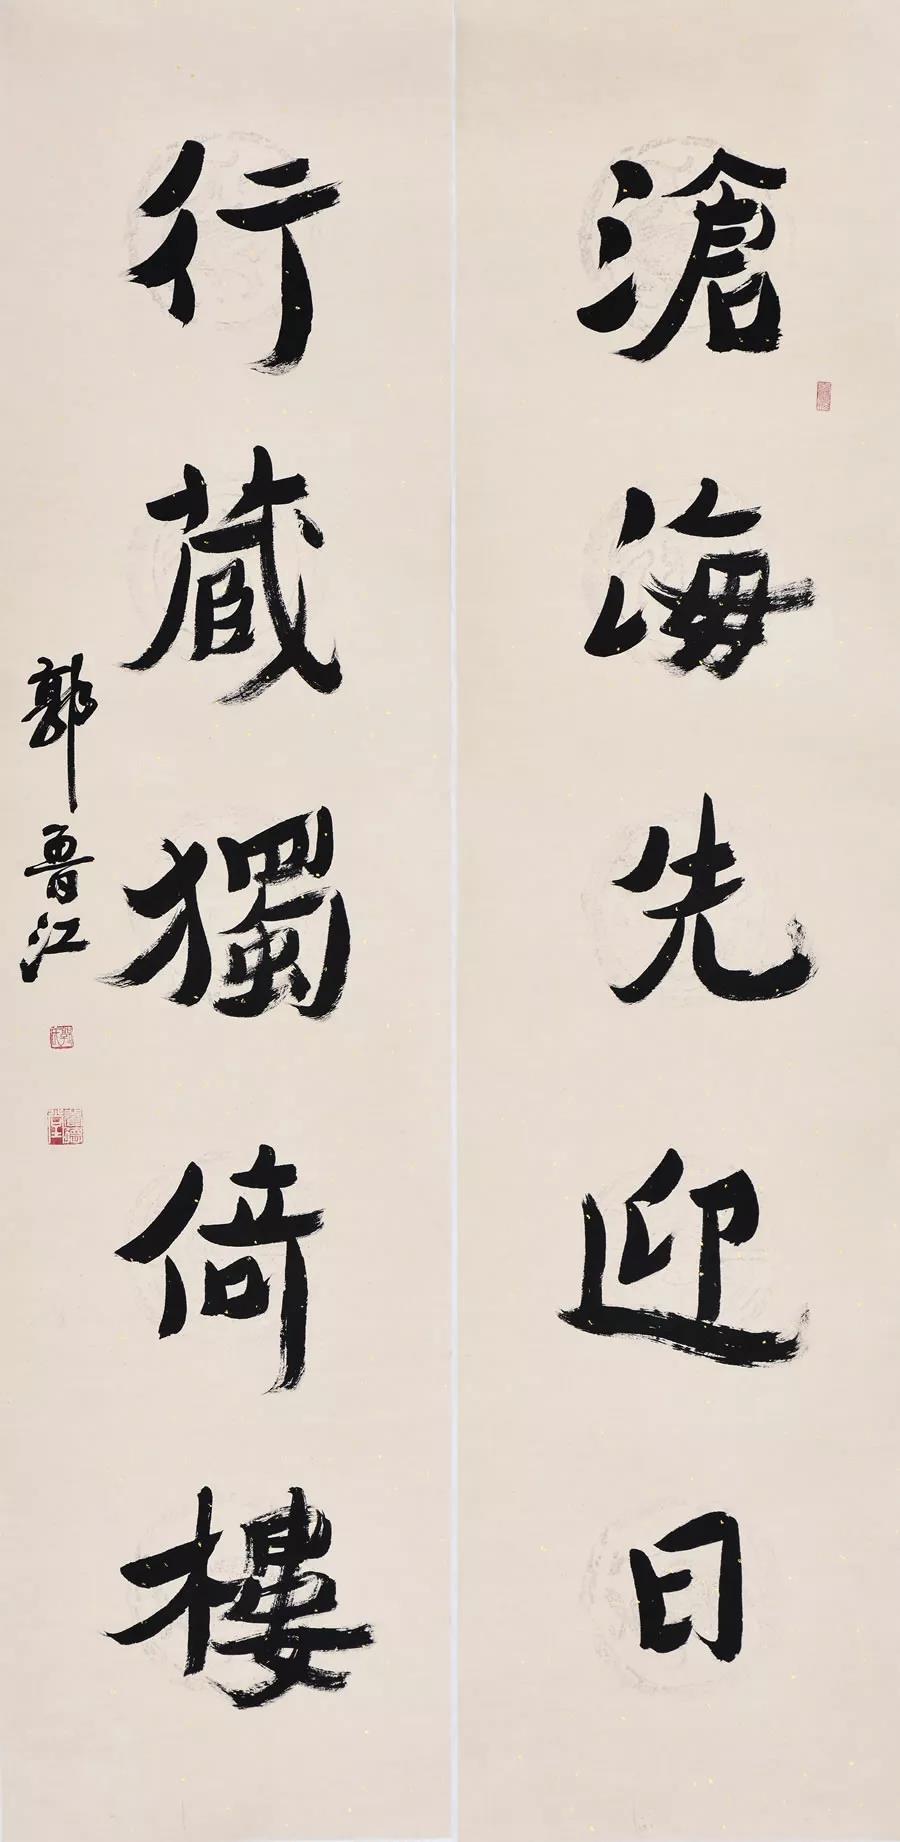 滄海先迎日
行蔵獨倚樓
郭魯江